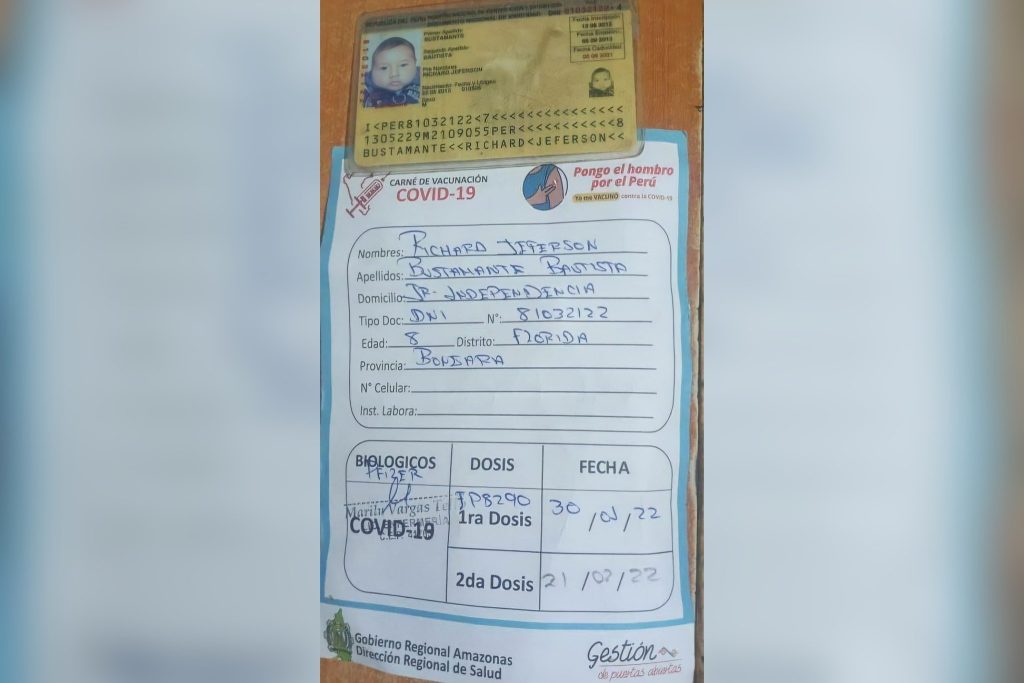 REPUBLICA DEL PERU
81032122-4
Primer Apellido
BUSTAMANTE
Segundo Apellido
BAUTISTA
Pre Nombres
RICHARD JEFERSON
Fecha Inscripción
Fecha Emisión
Fecha Caducidad
I<PER81032122<7<<<<<<<<<<<<<<<
1305229M2109055PER<<<<<<<<<<<8
BUSTAMANTE<<RICHARD<JEFERSON<<
CARNÉ DE VACUNACIÓN
COVID-19
Pongo el hombro
por el Perú
Yo me VACUNO contra la COVID-19
Nombres: RICHARD JEFERSON
Apellidos: BUSTAMANTE BAUTISTA
Domicilio: JR. INDEPENDENCIA
Tipo Doc: DNI N°: 81032122
Edad: 8 Distrito: FLORIDA
Provincia: BONGARA
N° Celular:
Inst. Labora:
BIOLOGICOS DOSIS FECHA
PFIZER
Marilu Vargas
COVID-19
FP8290
1ra Dosis 30/ /22
2da Dosis 21/02/22
Gobierno Regional Amazonas
Dirección Regional de Salud
Gestión
de puertas abiertas